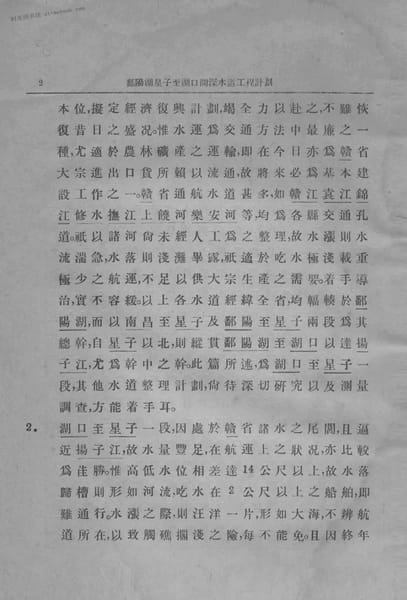 2 鄱陽湖星子至湖口間深水道工程計劃
本位,擬定經濟復興計劃,竭全力以赴之,不難恢
復昔日之盛况。惟水運爲交通方法中最廉之一
種,尤適於農林礦產之運輸,即在今日亦爲贛省
大宗進出口貨所賴以流通,故將來必爲基本建
設工作之一。贛省通航水道甚多,如贛江袁江錦
江修水撫江上饒河樂安河等,均爲各縣交通孔
道。祇以諸河尙未經人工爲之整理,故水漲則水
流湍急,水落則淺灘畢露,祇適於吃水淺載重
極少之航運,不足以供大宗生產之需要。着手導
治,實不容緩。以上各水道經緯全省,均輻輳於鄱
陽湖,而以南昌至星子及鄱陽至星子兩段爲其
總幹,自星子以北,則縱貫鄱陽湖至湖口以達揚
子江,尤爲幹中之幹。此篇所述,爲湖口至星子一
段,其他水道整理計劃,尙待深切研究以及測量
調查,方能着手耳。
2. 湖口至星子一段,因處於贛省諸水之尾閭,且逼
近揚子江,故水量豐足,在航運上之狀况,亦比較
爲佳勝。惟高低水位相差達14公尺以上,故水落
歸槽則形如河流,吃水在2公尺以上之船舶,即
雖通行。水漲之際,則汪洋一片,形如大海,不辨航
道所在,以致觸礁擱淺之險,每不能免。且因終年